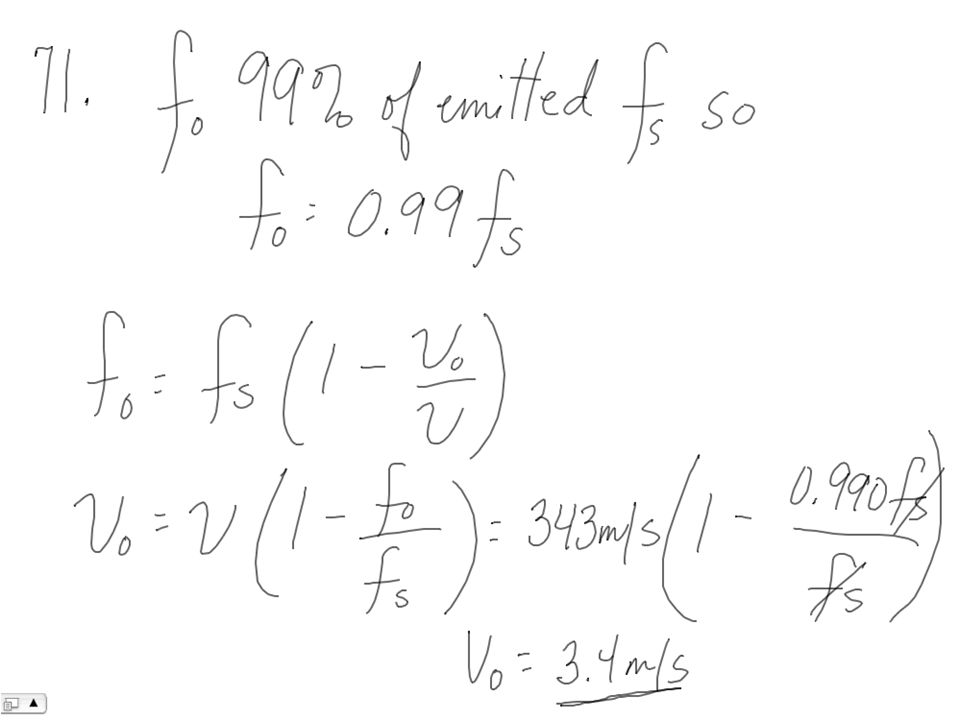 71. fₒ 99% of emitted fₛ so
fₒ = 0.99 fₛ
fₒ = fₛ (1 - vₒ/v)
vₒ = v (1 - fₒ/fₛ) = 343m/s (1 - 0.990fₛ/fₛ)
Vₒ = 3.4 m/s